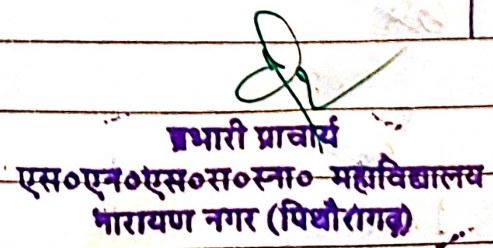 प्रभारी प्राचार्य
एस०एन०एस०स०स्ना० महाविद्यालय
नारायण नगर (पिथौरागढ़)